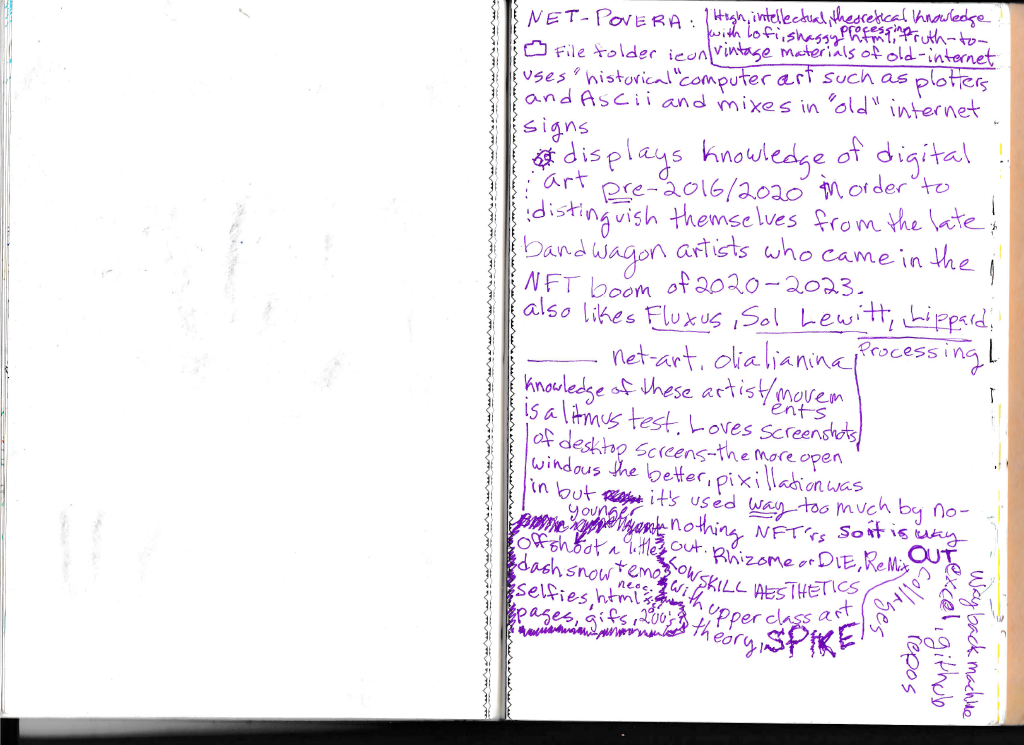 NET-POVERA:
High, intellectual, theoretical knowledge
with lofi, shaggy html, truth-to-
processing
vintage materials of old-internet
File folder icon
uses "historical" computer art such as plotters
and AsCii and mixes in "old" internet
signs
displays knowledge of digital
art pre-2016/2020 in order to
distinguish themselves from the late
bandwagon artists who came in the
NFT boom of 2020-2023.
also likes Fluxus, Sol Lewitt, Lippard
net-art, olialianina
Processing
knowledge of these artist/movem
ents
is a litmus test. Loves screenshots
of desktop screens-the more open
windous the better, pixillation was
in but it's used way too much by no-
nothing NFT'rs so it is way
out. Rhizome or DIE, ReMix
OUT
LOW SKILL AESTHETICS
with upper class art
theory, SPIKE
younger
offshoot a little
dash snow + emo
selfies, html neo
pages, gifs, 200's
coll
ses
excel, github
repos
way back machine